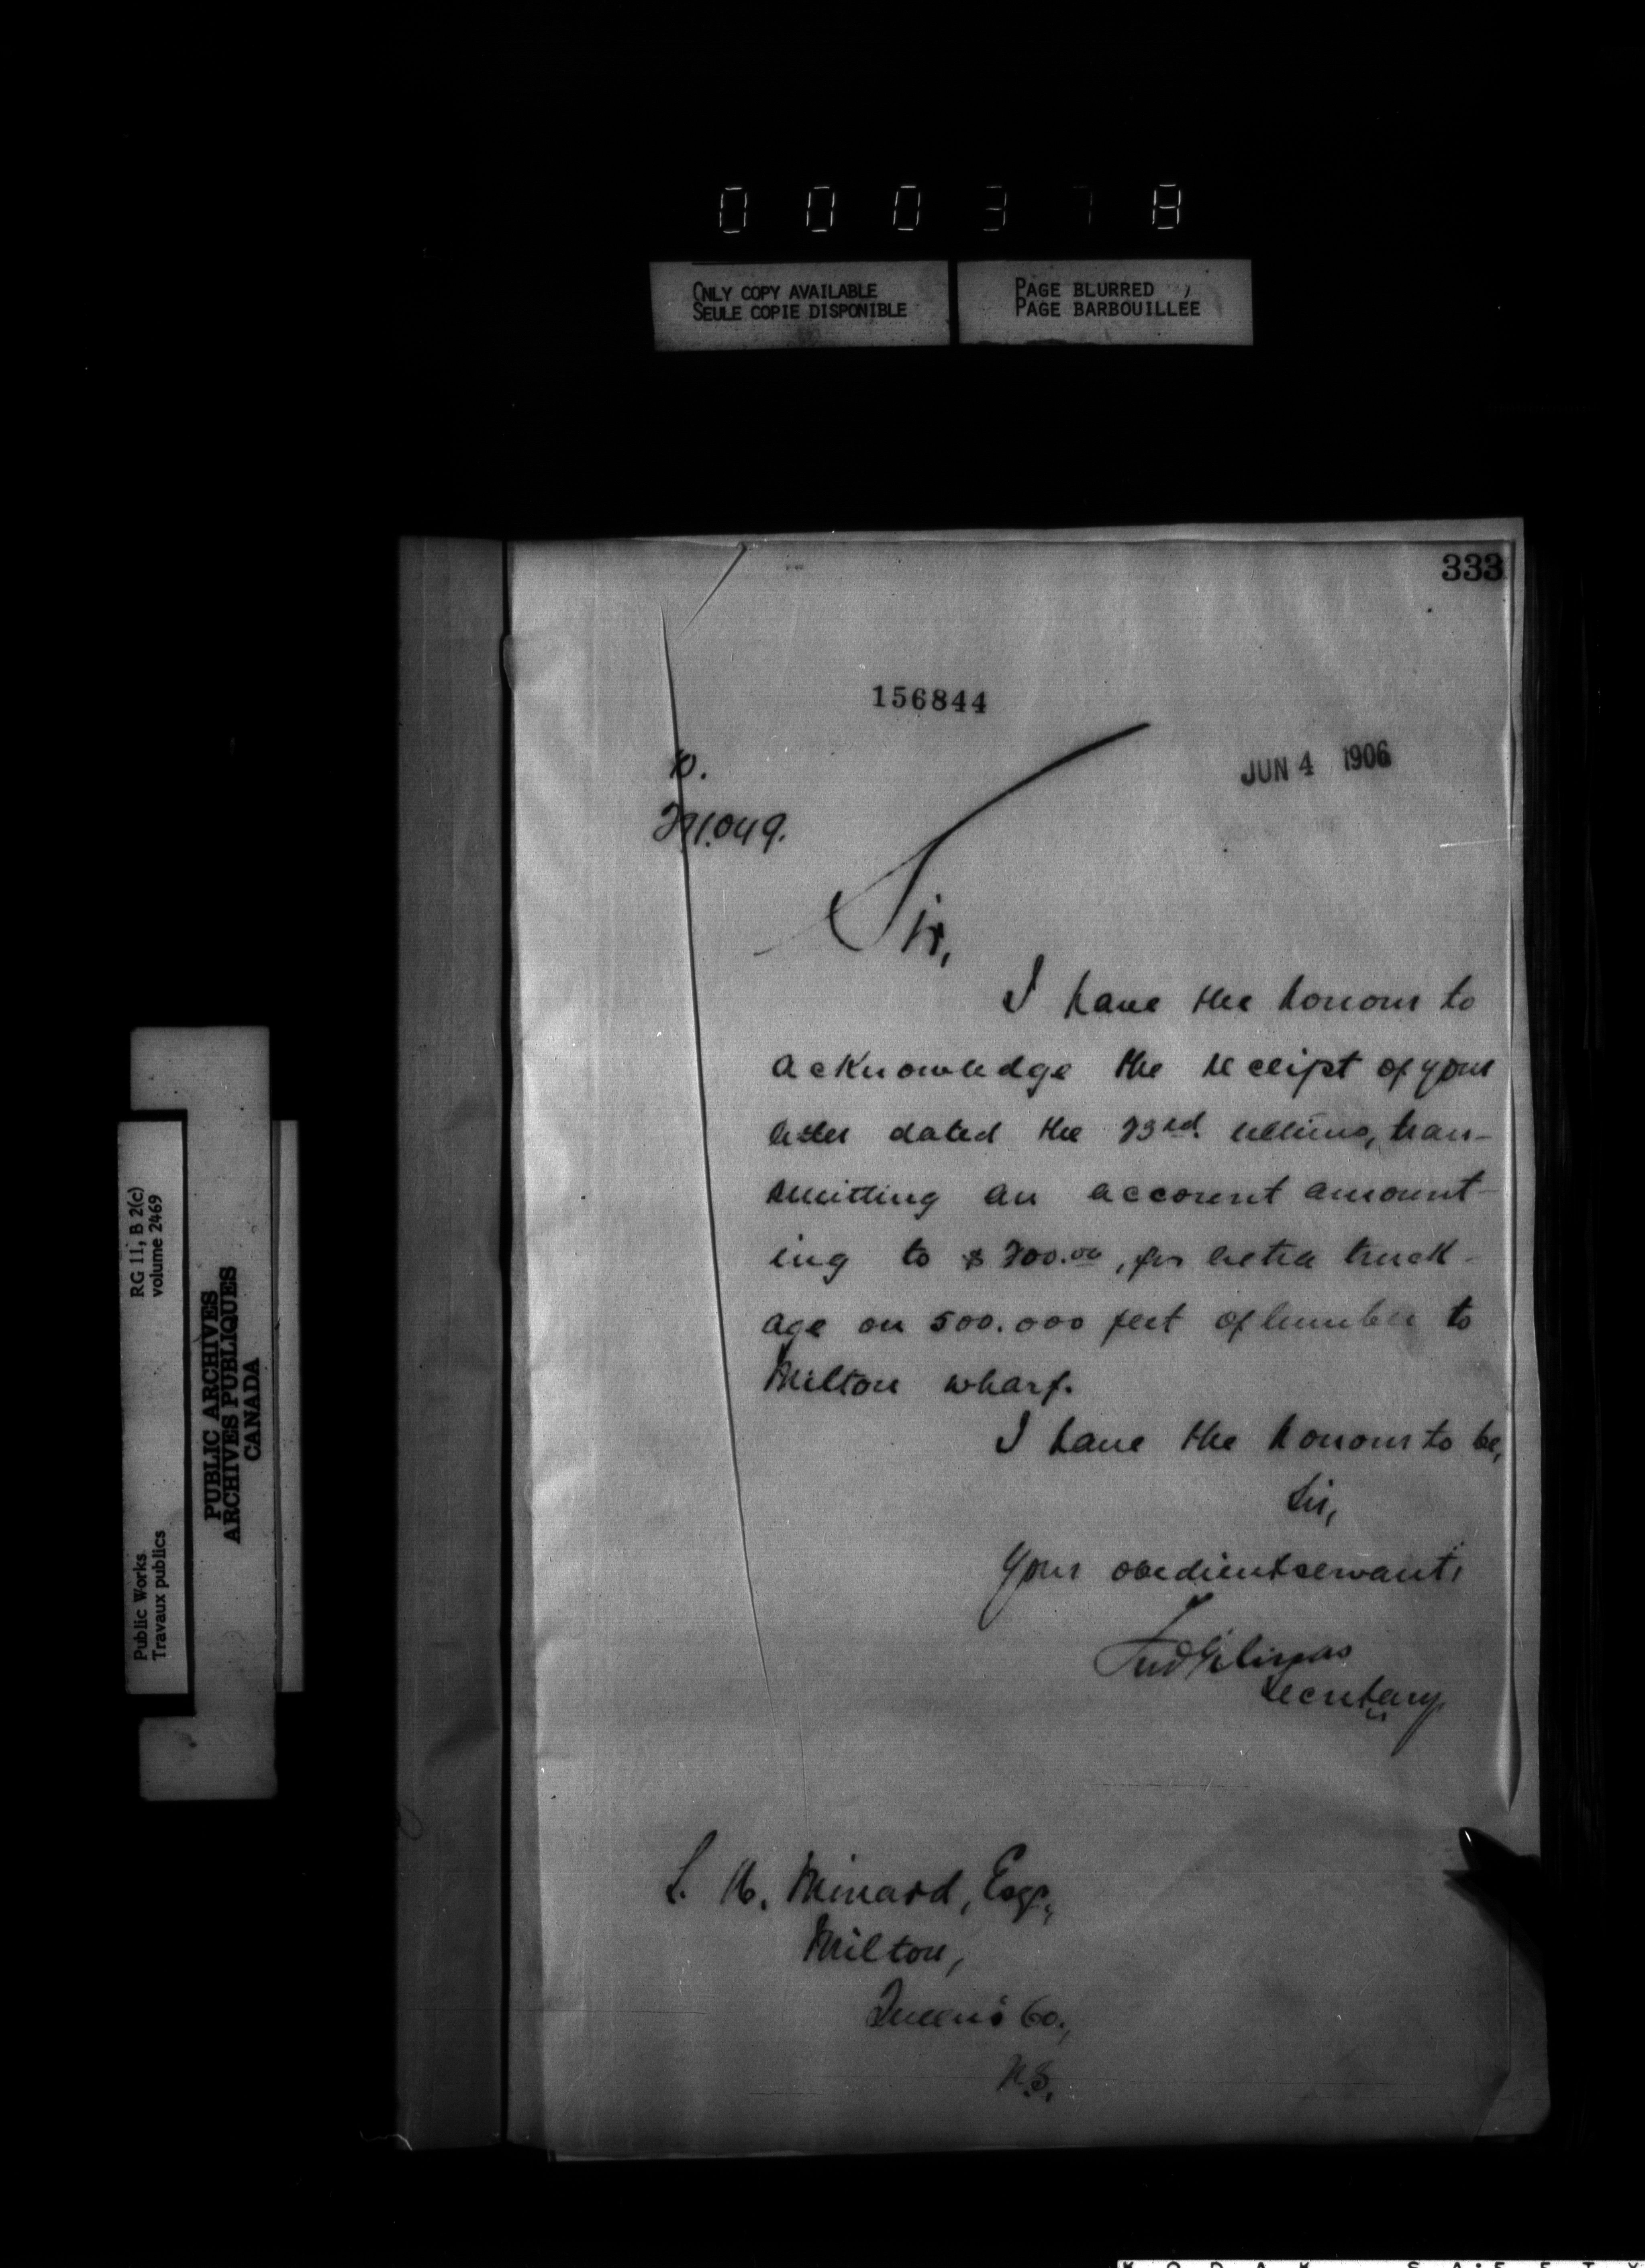 000378
ONLY COPY AVAILABLE
SEULE COPIE DISPONIBLE
PAGE BLURRED
PAGE BARBOUILLEE
333
156844
JUN 4 1906
291.049.
Sir,
I have the honour to
acknowledge the receipt of your
letter dated the 23rd. ultimo, tran-
smitting an account amount-
ing to $200.00, for extra truck-
age on 500.000 feet of lumber to
Milton wharf.
I have the honour to be,
Sir,
Your obedient servant,
Fred Gélinas
Secretary
S. H. Minard, Esqr.,
Milton,
Queen's Co.,
N.S.
RG 11, B 2(c)
volume 2469
Public Works
Travaux publics
PUBLIC ARCHIVES
ARCHIVES PUBLIQUES
CANADA